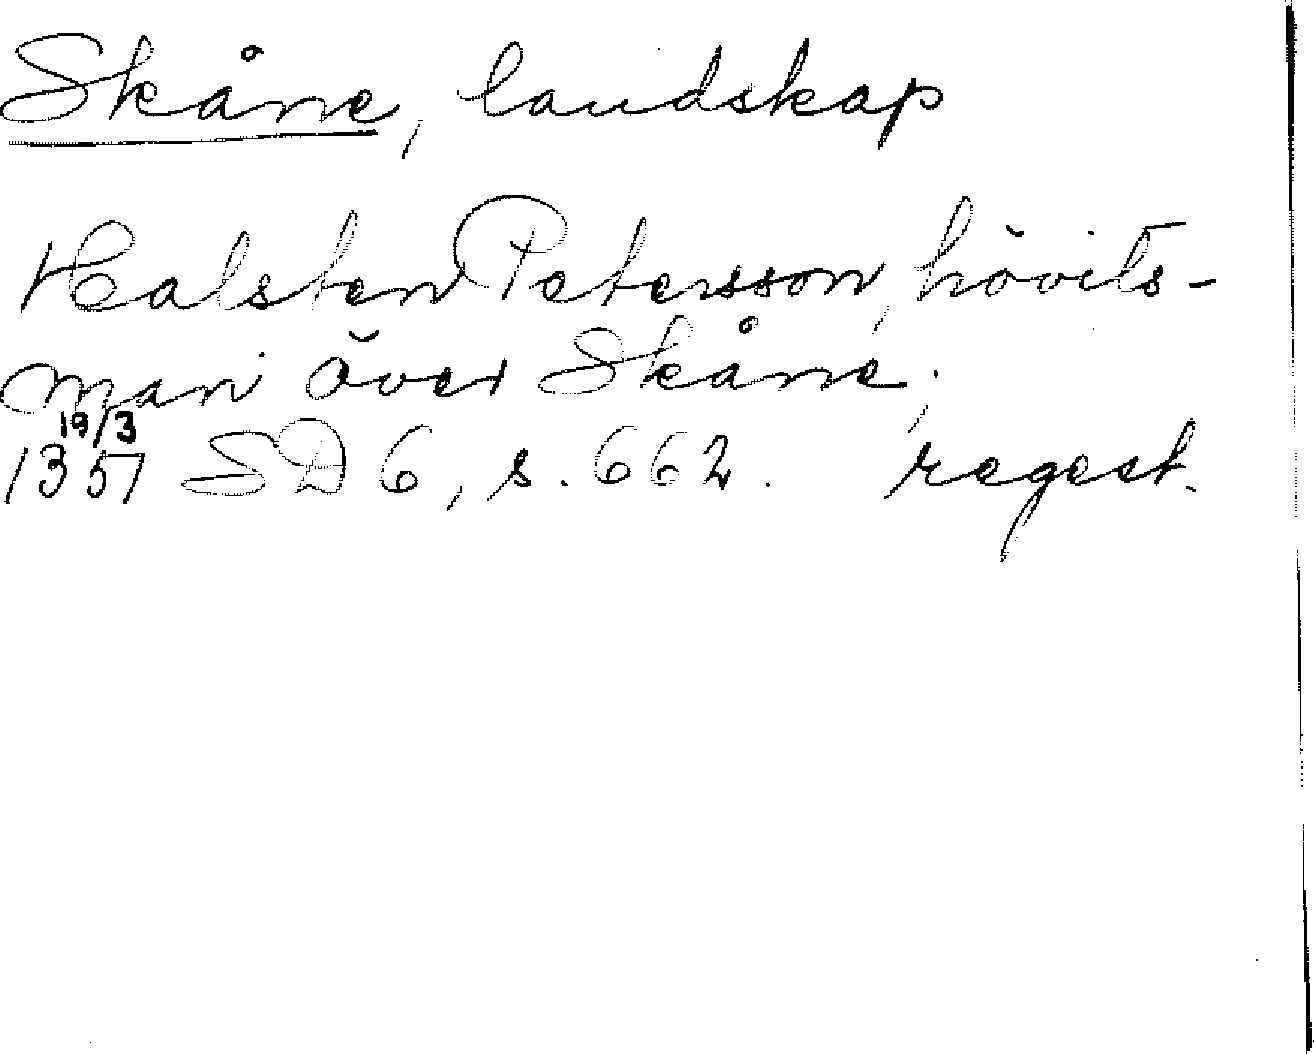 Skåne, landskap
Halsten Petersson, hövits-
man över Skåne,
19/3
1357 SD 6, s. 662. regest.